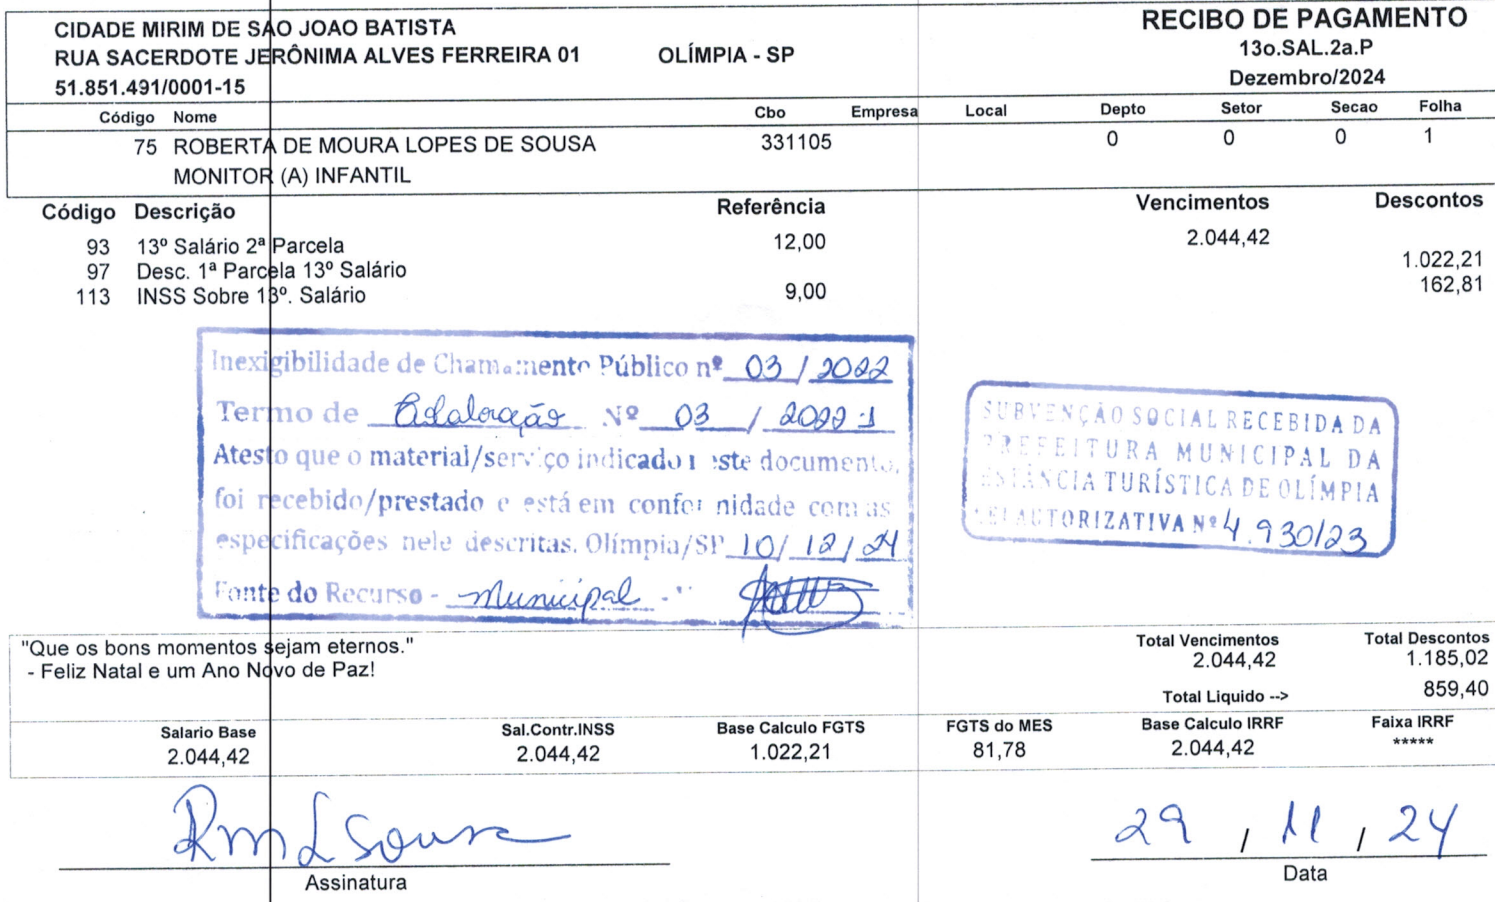 CIDADE MIRIM DE SAO JOAO BATISTA
RUA SACERDOTE JERÔNIMA ALVES FERREIRA 01 OLÍMPIA - SP
51.851.491/0001-15
RECIBO DE PAGAMENTO
13o.SAL.2a.P
Dezembro/2024
Código Nome Cbo Empresa Local Depto Setor Secao Folha
75 ROBERTA DE MOURA LOPES DE SOUSA 331105 0 0 0 1
MONITOR (A) INFANTIL
Código Descrição Referência Vencimentos Descontos
93 13º Salário 2ª Parcela 12,00 2.044,42
97 Desc. 1ª Parcela 13º Salário 1.022,21
113 INSS Sobre 13º. Salário 9,00 162,81
Inexigibilidade de Chamamento Público nº 03 / 2022
Termo de Colaboração Nº 03 / 2022
Atesto que o material/serviço indicado neste documento,
foi recebido/prestado e está em conformidade com as
especificações nele descritas. Olímpia/SP 10/ 12/ 24
Fonte do Recurso - municipal
SUBVENÇÃO SOCIAL RECEBIDA DA
PREFEITURA MUNICIPAL DA
ESTÂNCIA TURÍSTICA DE OLÍMPIA
LEI AUTORIZATIVA Nº 4.930/23
"Que os bons momentos sejam eternos."
- Feliz Natal e um Ano Novo de Paz!
Total Vencimentos Total Descontos
2.044,42 1.185,02
Total Liquido --> 859,40
Salario Base Sal.Contr.INSS Base Calculo FGTS FGTS do MES Base Calculo IRRF Faixa IRRF
2.044,42 2.044,42 1.022,21 81,78 2.044,42 *****
RmLSousa
29 , 11 , 24
Assinatura
Data